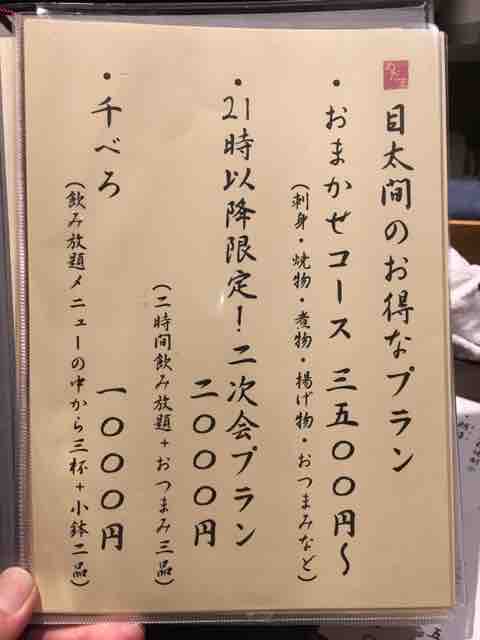 目太間のお得なプラン
・おまかせコース 三五〇〇円〜
(刺身・焼物・煮物・揚げ物・おつまみなど)
・21時以降限定!二次会プラン
二〇〇〇円
(二時間飲み放題+おつまみ三品)
・千べろ 一〇〇〇円
(飲み放題メニューの中から三杯+小鉢二品)